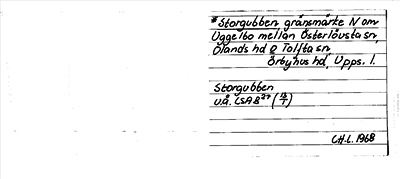 *Storgubben gränsmärke N om
Uggelbo mellan Österlövsta sn,
Olands hd o Tolfta sn,
Örbyhus hd, Upps. l.
Storgubben
u.å. LSA B27
C.H.L. 1968